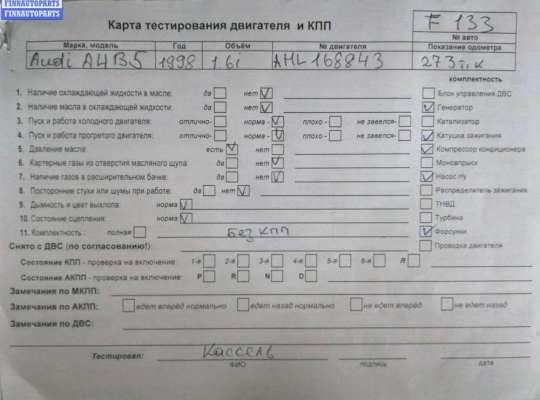 FINNAUTOPARTS
Карта тестирования двигателя и КПП
F 133
№ авто
Марка, модель Год Объём № двигателя Показание одометра
Audi A4B5 1998 1.6i AHL168843 273 т.к
комплектность
1. Наличие охлаждающей жидкости в масле: да нет Блок управления ДВС
2. Наличие масла в охлаждающей жидкости: да нет Генератор
3. Пуск и работа холодного двигателя: отлично- норма - плохо - не завелся- Катализатор
4. Пуск и работа прогретого двигателя: отлично- норма - плохо - не завелся- Катушка зажигания
5. Давление масла: есть нет Компрессор кондиционера
6. Картерные газы из отверстия масляного щупа: да нет Моновпрыск
7. Наличие газов в расширительном бачке: да нет Насос гу
8. Посторонние стуки или шумы при работе: да нет Распределитель зажигания
9. Дымность и цвет выхлопа: норма ТНВД
10. Состояние сцепления: норма Турбина
11. Комплектность : полная Без КПП Форсунки
Снято с ДВС (по согласованию!): Проводка двигателя
Состояние КПП - проверка на включение: 1-я 2-я 3-я 4-я 5-я 6-я R
Состояние АКПП - проверка на включение: P R N D
Замечания по МКПП:
Замечания по АКПП: едет вперёд нормально едет назад нормально не едет вперёд не едет назад
Замечания по ДВС:
Тестировал: Кассель
ФИО подпись дата
FINNAUTOPARTS